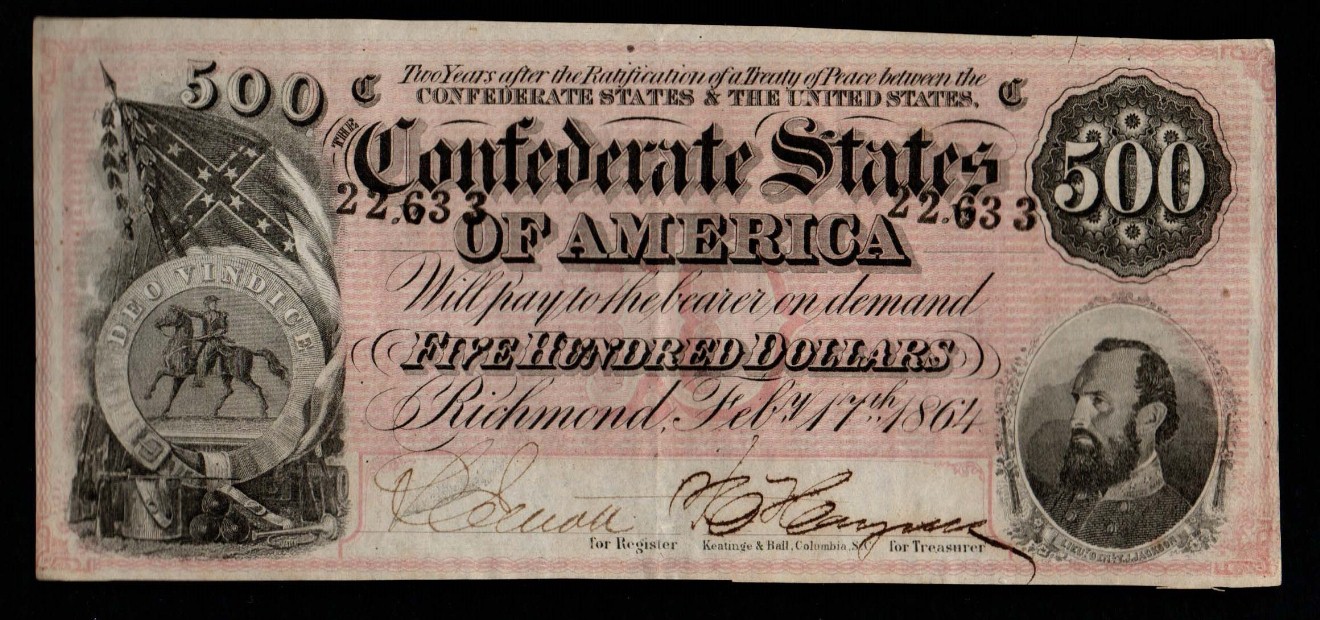 500
C Two Years after the Ratification of a Treaty of Peace between the C
CONFEDERATE STATES & THE UNITED STATES,
THE
Confederate States
500
22.633 22.633
OF AMERICA
DEO VINDICE
Will pay to the bearer on demand
FIVE HUNDRED DOLLARS
Richmond, Feby 17th 1864
for Register Keatinge & Ball, Columbia, S.C. for Treasurer
J. JACKSON